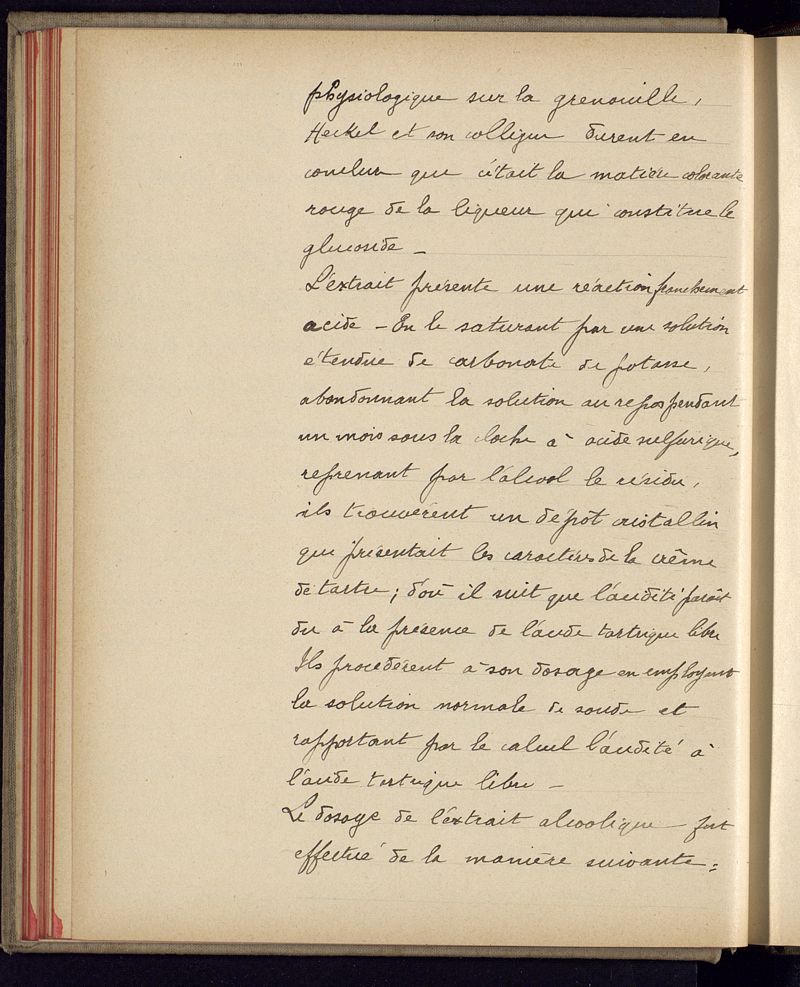 physiologique sur la grenouille,
Heckel et son collègue durent en
conclure que c'était la matière colorante
rouge de la liqueur qui constitue le
glucoside —
L'extrait présente une réaction franchement
acide — En le saturant par une solution
étendue de carbonate de potasse,
abandonnant la solution au repos pendant
un mois sous la cloche à acide sulfurique,
reprenant par l'alcool le résidu,
ils trouvèrent un dépôt cristallin
qui présentait les caractères de la crème
de tartre ; d'où il suit que l'acidité paraît
du à la présence de l'acide tartrique libre
Ils procédèrent à son dosage en employant
la solution normale de soude et
rapportant par le calcul l'acidité à
l'acide tartrique libre —
Le dosage de l'extrait alcoolique fut
effectué de la manière suivante :